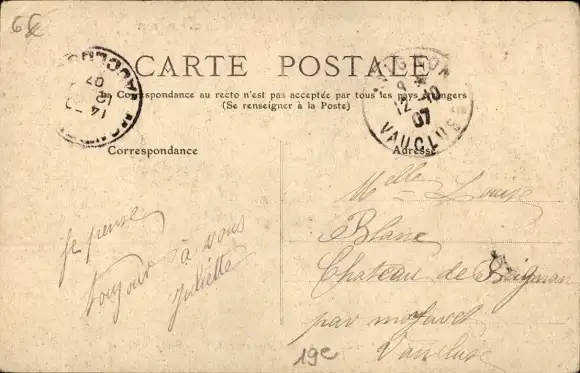 6 f
CARTE POSTALE
La Correspondance au recto n'est pas acceptée par tous les pays étrangers
(Se renseigner à la Poste)
AVIGNON
12 - 10
07
VAUCLUSE
14
12
07
VAUCLUSE
Correspondance
Adresse
Je pense
toujour à vous
Juliette
Melle Louise
Blanc
Chateau de
par
Vaucluse
19e